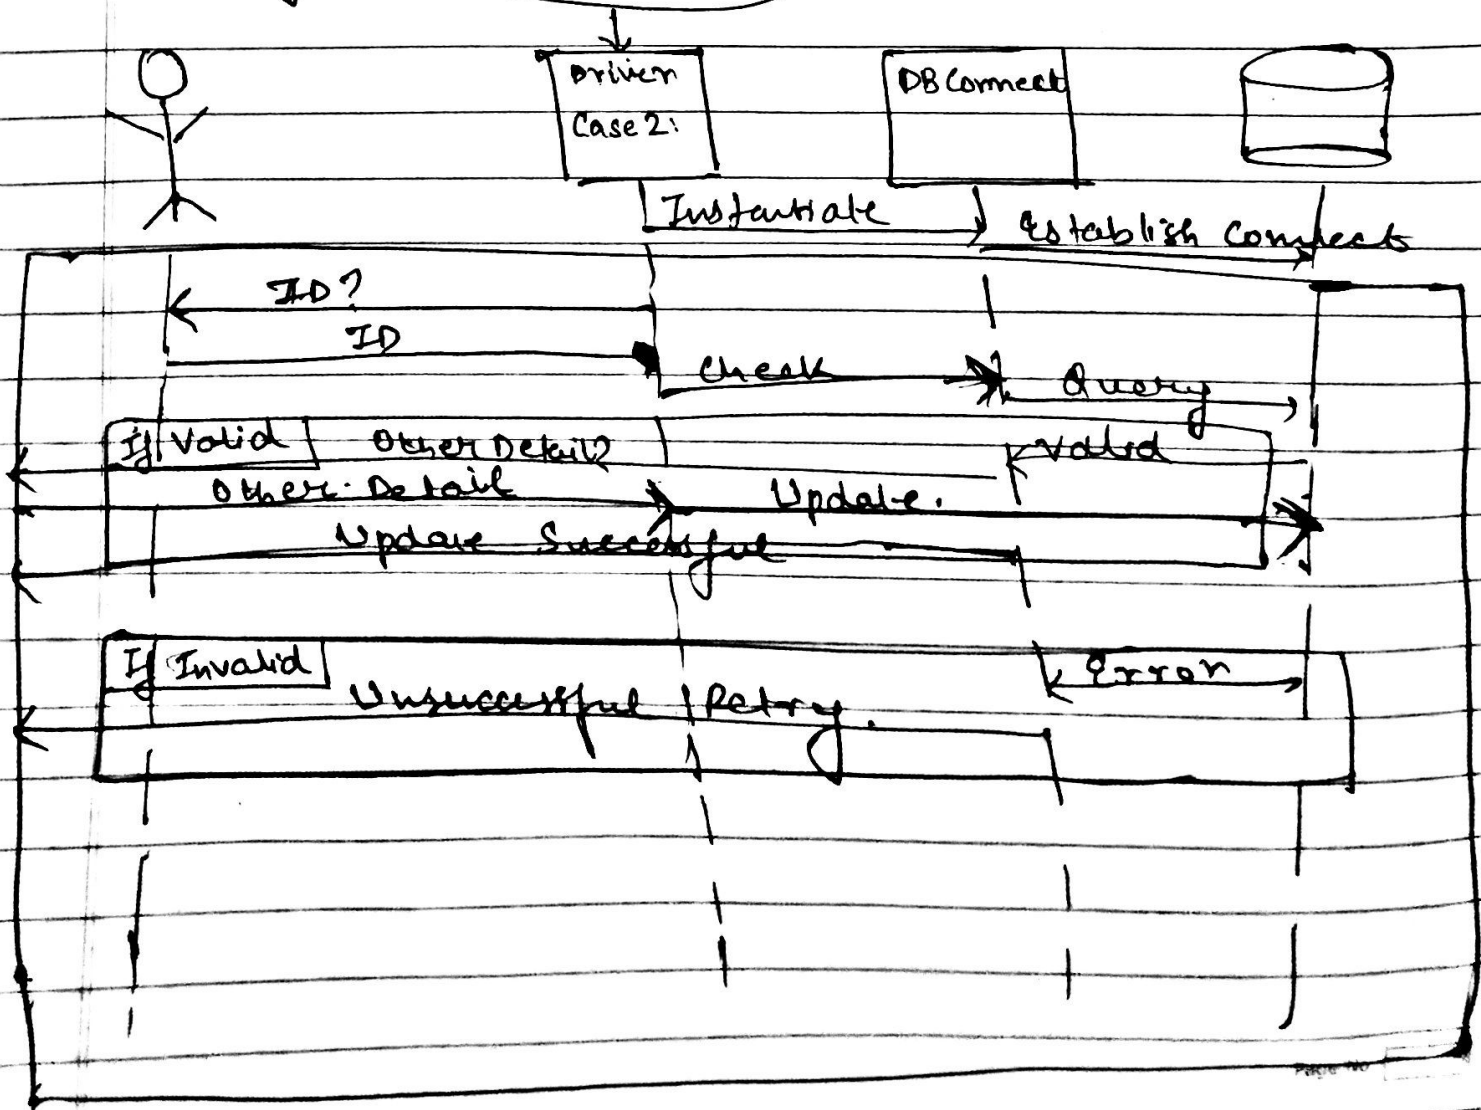 Driver
Case 2:
DB Connect
Instantiate
Establish Connect
ID?
ID
Check
Query
If Valid
Other Detail?
Valid
Other Detail
Update.
Update Successful
If Invalid
Error
Unsuccessful Retry.
Page No